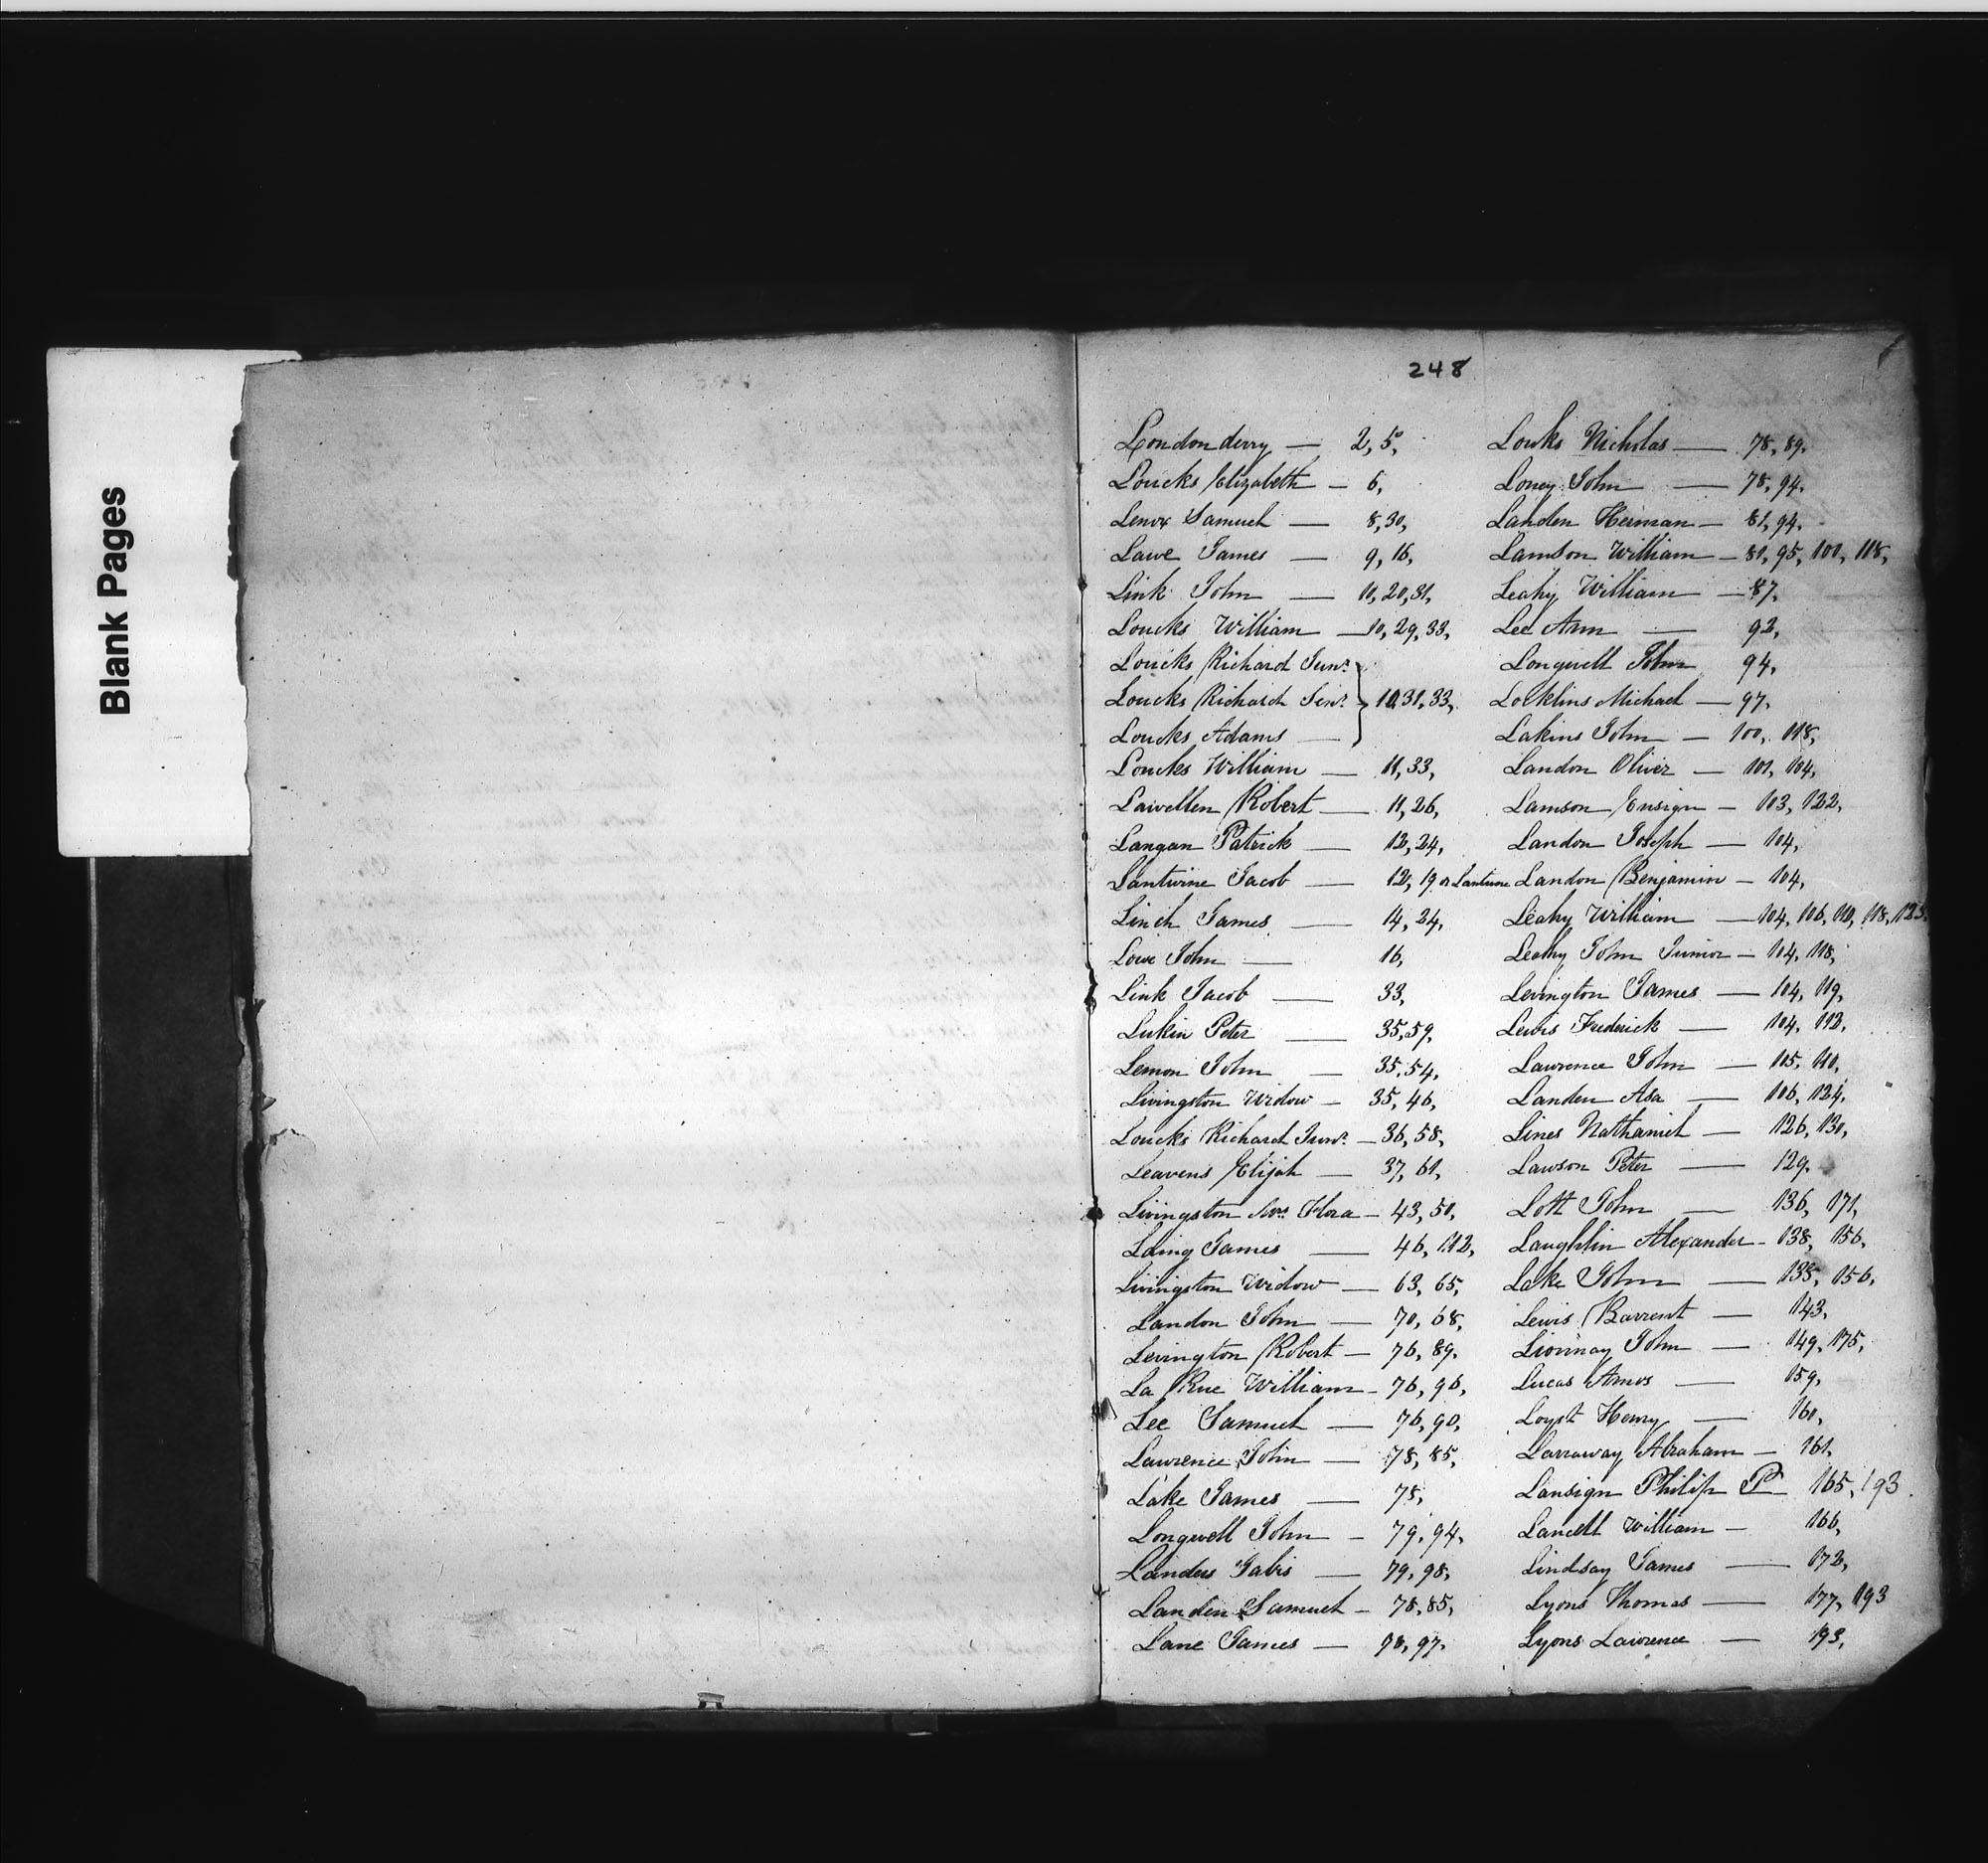 Blank Pages
248
Londonderry — 2, 5,
Loucks Elizabeth — 6,
Lenox Samuel — 8, 30,
Lawe James — 9, 16,
Link John — 10, 20, 31,
Loucks William — 10, 29, 33,
Loucks Richard Junr.
Loucks Richard Senr. } 10, 31, 33,
Loucks Adams —
Loucks William — 11, 33,
Lawellen Robert — 11, 26,
Langan Patrick — 12, 24,
Lantwine Jacob — 12, 19 or Lanturne
Linch James — 14, 24,
Lowe John — 16,
Link Jacob — 33,
Lukin Peter — 35, 59,
Lemon John — 35, 54,
Livingston Widow — 35, 46,
Loucks Richard Junr. — 36, 58,
Leavens Elijah — 37, 61,
Livingston Mrs. Flora — 43, 50,
Laing James — 46, 112,
Livingston Widow — 63, 65,
Landon John — 70, 68,
Levington Robert — 76, 89,
La Rue William — 76, 96,
Lee Samuel — 76, 90,
Lawrence John — 78, 85,
Lake James — 78,
Longwell John — 79, 94,
Landers Jabis — 79, 98,
Landen Samuel — 78, 85,
Lane James — 78, 97,
Louks Nicholas — 78, 89,
Loney John — 78, 94,
Landen Herman — 81, 94,
Lamson William — 81, 95, 100, 118,
Leahy William — 87,
Lee Ann — 92,
Longwell John 94,
Locklins Michael — 97,
Lakins John — 100, 118,
Landon Oliver — 101, 104,
Lamson Ensign — 103, 122,
Landon Joseph — 104,
Landon Benjamin — 104,
Leahy William — 104, 106, 110, 118, 123,
Leahy John Junior — 104, 118,
Levington James — 104, 119,
Lewis Frederick — 104, 112,
Lawrence John — 105, 110,
Landen Asa — 106, 124,
Lines Nathaniel — 126, 130,
Lawson Peter — 129,
Lott John — 136, 171,
Laughlin Alexander — 138, 156,
Lake John — 138, 156,
Lewis Barrent — 143,
Lionnay John — 149, 175,
Lucas Amos — 159,
Loyst Henry — 160,
Larraway Abraham — 161,
Lansign Philip P — 165, 193.
Lancell William — 166,
Lindsay James — 172,
Lyons Thomas — 177, 193
Lyons Lawrence — 193,